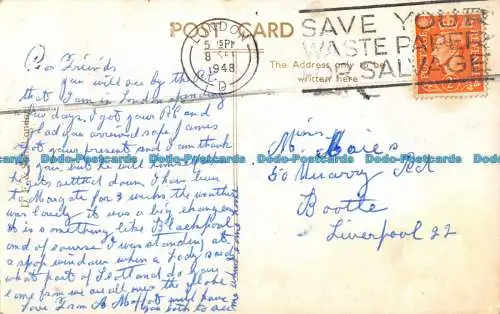 POST CARD
LONDON
5 15PM
8 SE
1948
E.D
SAVE YOUR
WASTE PAPER
FOR SALVAGE
The Address only to be
written here
Dear Friends
you will see by the P.C.
that I am in London spending
few days, I got your P.C and
glad you arrived safe, James
got your present and I can thank
you, but he will
he gets settled down, I have been
to Margate for 2 weeks, the weather
was lovely it was a big change
it is something like Blackpool
and of course I was standing at
a shop window when a Lady said
what part of Scotland do you
come from we are all over the globe
Love from A Moffat will have
you both to see
Miss Maies
50 Quarry Rd
Bootle
Liverpool 22
Dodo-Postcards Dodo-Postcards Dodo-Postcards Dodo-Postcards Dodo-Postcards Dodo-Postcards